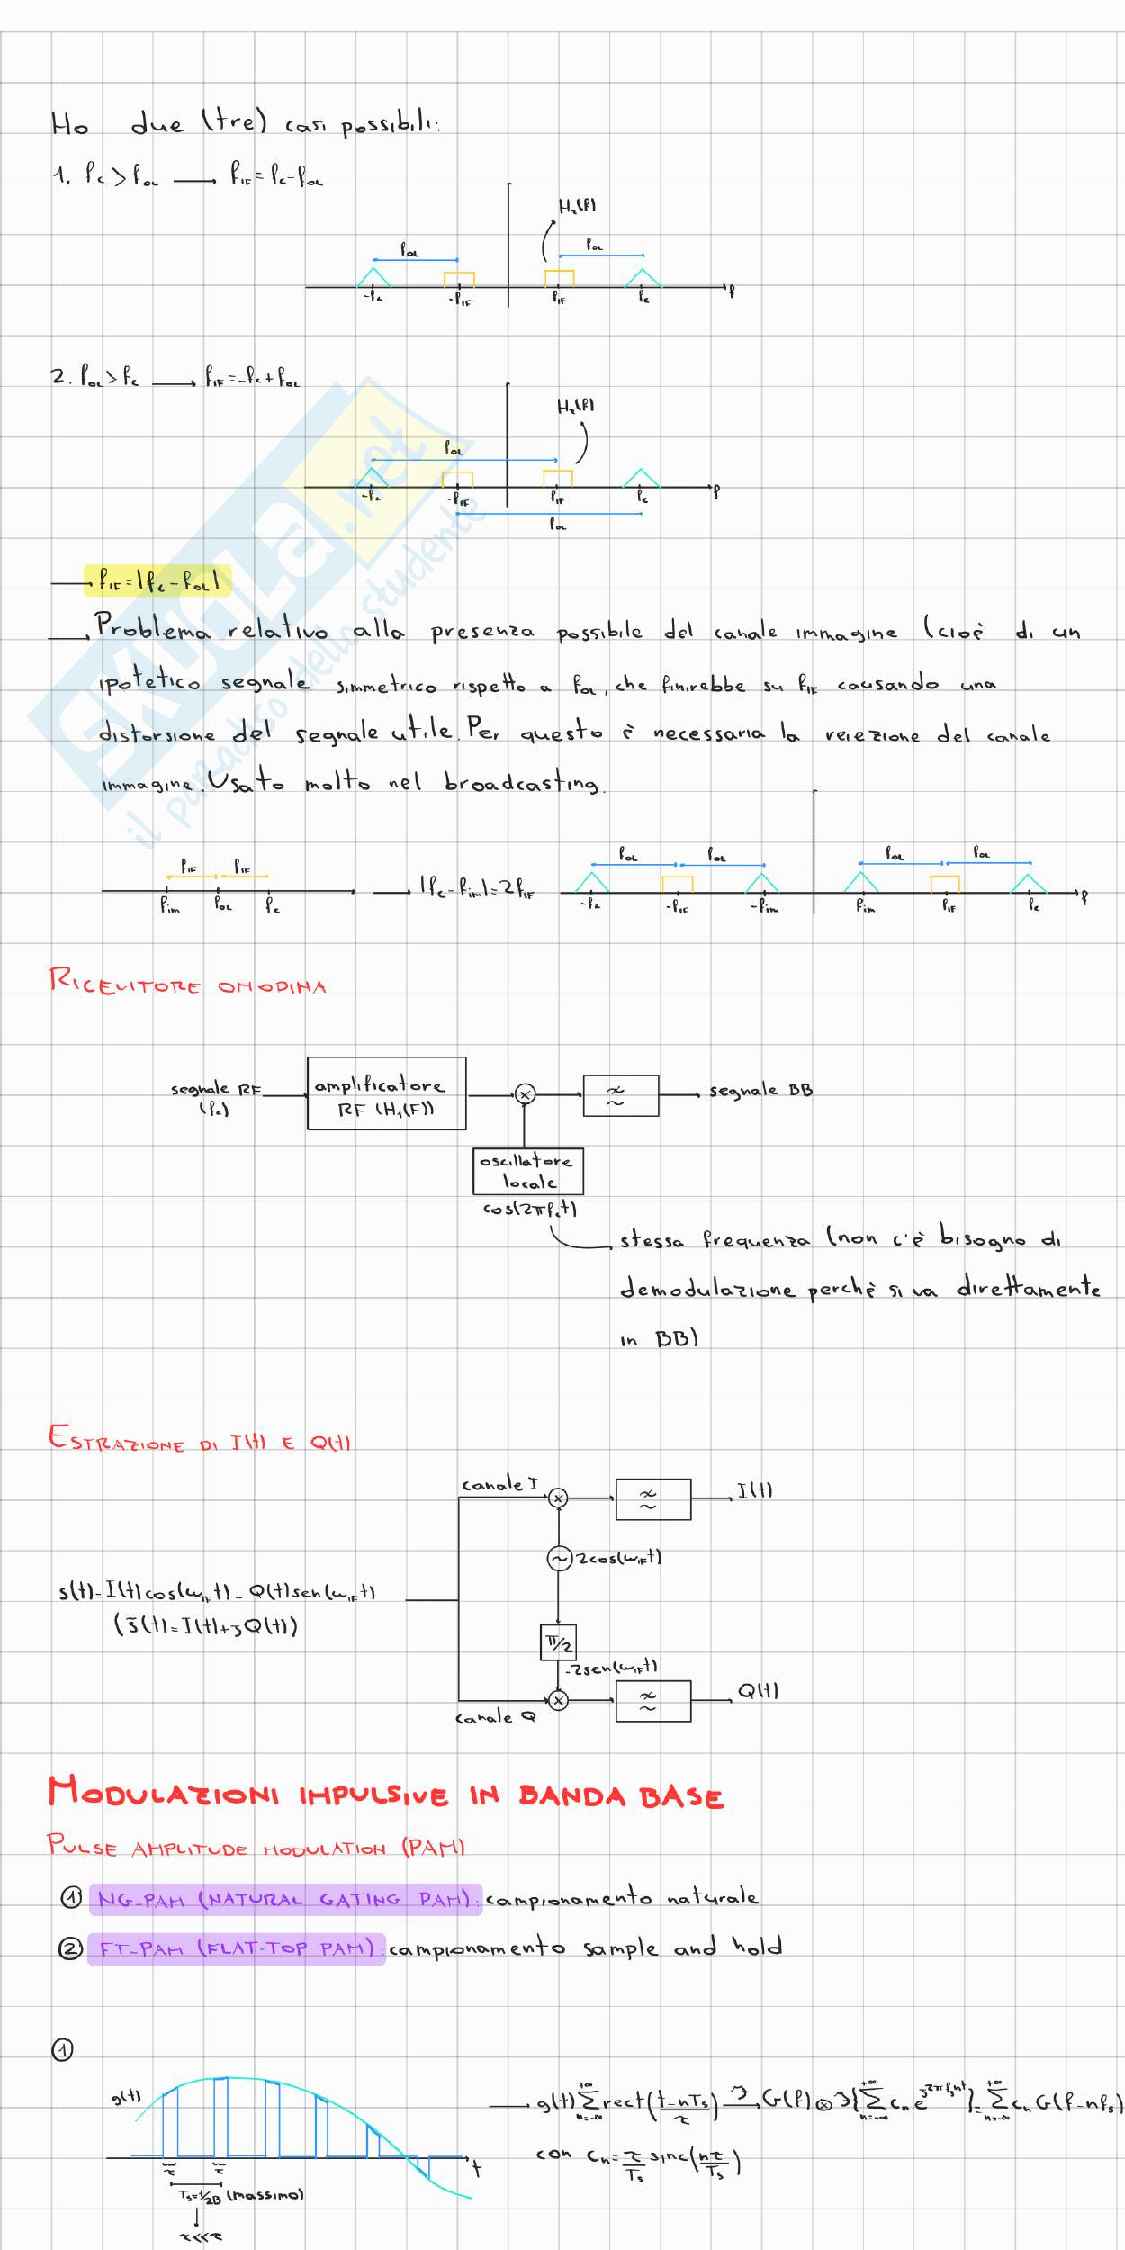 Ho due (tre) casi possibili:
1. fc > fOL → fIF = fc - fOL
H2(f)
fOL fOL
-fc -fIF fIF fc f
2. fOL > fc → fIF = -fc + fOL
H2(f)
fOL
-fc -fIF fIF fc f
fOL
→ fIF = |fc - fOL|
→ Problema relativo alla presenza possibile del canale immagine (cioè di un
ipotetico segnale simmetrico rispetto a fOL, che finirebbe su fIF causando una
distorsione del segnale utile. Per questo è necessaria la reiezione del canale
immagine. Usato molto nel broadcasting.
SKUOLA.net
il paradiso dello studente
fIF fIF
fim fOL fc
→ |fc - fim| = 2fIF
fOL fOL fOL fOL
-fc -fIF -fim fim fIF fc f
RICEVITORE OMODINA
segnale RF
(fc)
amplificatore
RF (H1(F))
×
segnale BB
oscillatore
locale
cos(2πfct)
stessa frequenza (non c'è bisogno di
demodulazione perchè si va direttamente
in BB)
ESTRAZIONE DI I(t) E Q(t)
canale I
×
I(t)
~ 2cos(ωIFt)
s(t) = I(t)cos(ωIFt) - Q(t)sen(ωIFt)
(s̃(t) = I(t) + jQ(t))
π/2
-2sen(ωIFt)
×
Q(t)
canale Q
MODULAZIONI IMPULSIVE IN BANDA BASE
PULSE AMPLITUDE MODULATION (PAM)
① NG-PAM (NATURAL GATING PAM): campionamento naturale
② FT-PAM (FLAT-TOP PAM): campionamento sample and hold
①
g(t)
→ g(t) Σ n=-∞ +∞ rect((t-nTs)/τ) ℱ→ G(f) ⊗ ℱ{Σ n=-∞ +∞ cn e^j2πfsnt} = Σ n=-∞ +∞ cn G(f-nfs)
con cn = τ/Ts sinc(nτ/Ts)
t
τ τ
Ts = 1/2B (massimo)
τ<<τ